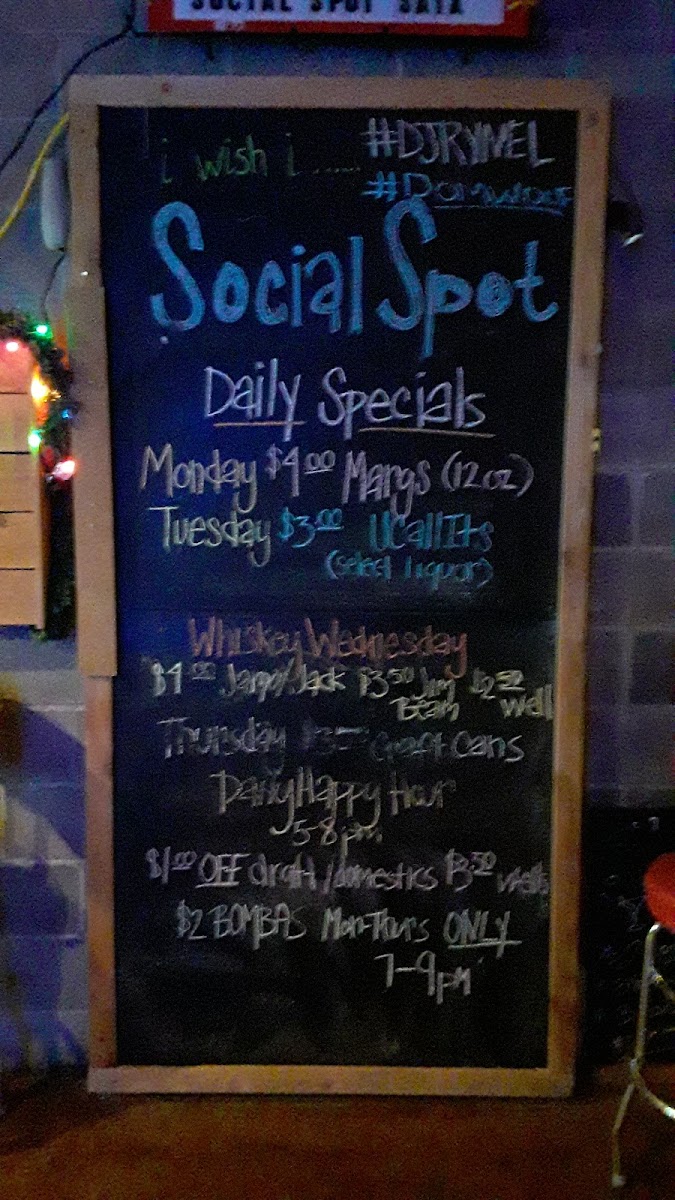 SOCIAL SPOT SATX
i wish i ......
#DJRYMEL
Social Spot
Daily Specials
Monday $4.00 Margs (12oz)
Tuesday $3.00 UCallIts
(select liquor)
Whiskey Wednesday
$4.00 Jamo/Jack $3.50 Jim Beam $2.50 Well
Thursday $3.00 Craft Cans
Daily Happy Hour
5-8pm
$1.00 OFF draft/domestics $3.50 wells
$2 BOMBAS Mon-Thurs ONLY
7-9pm